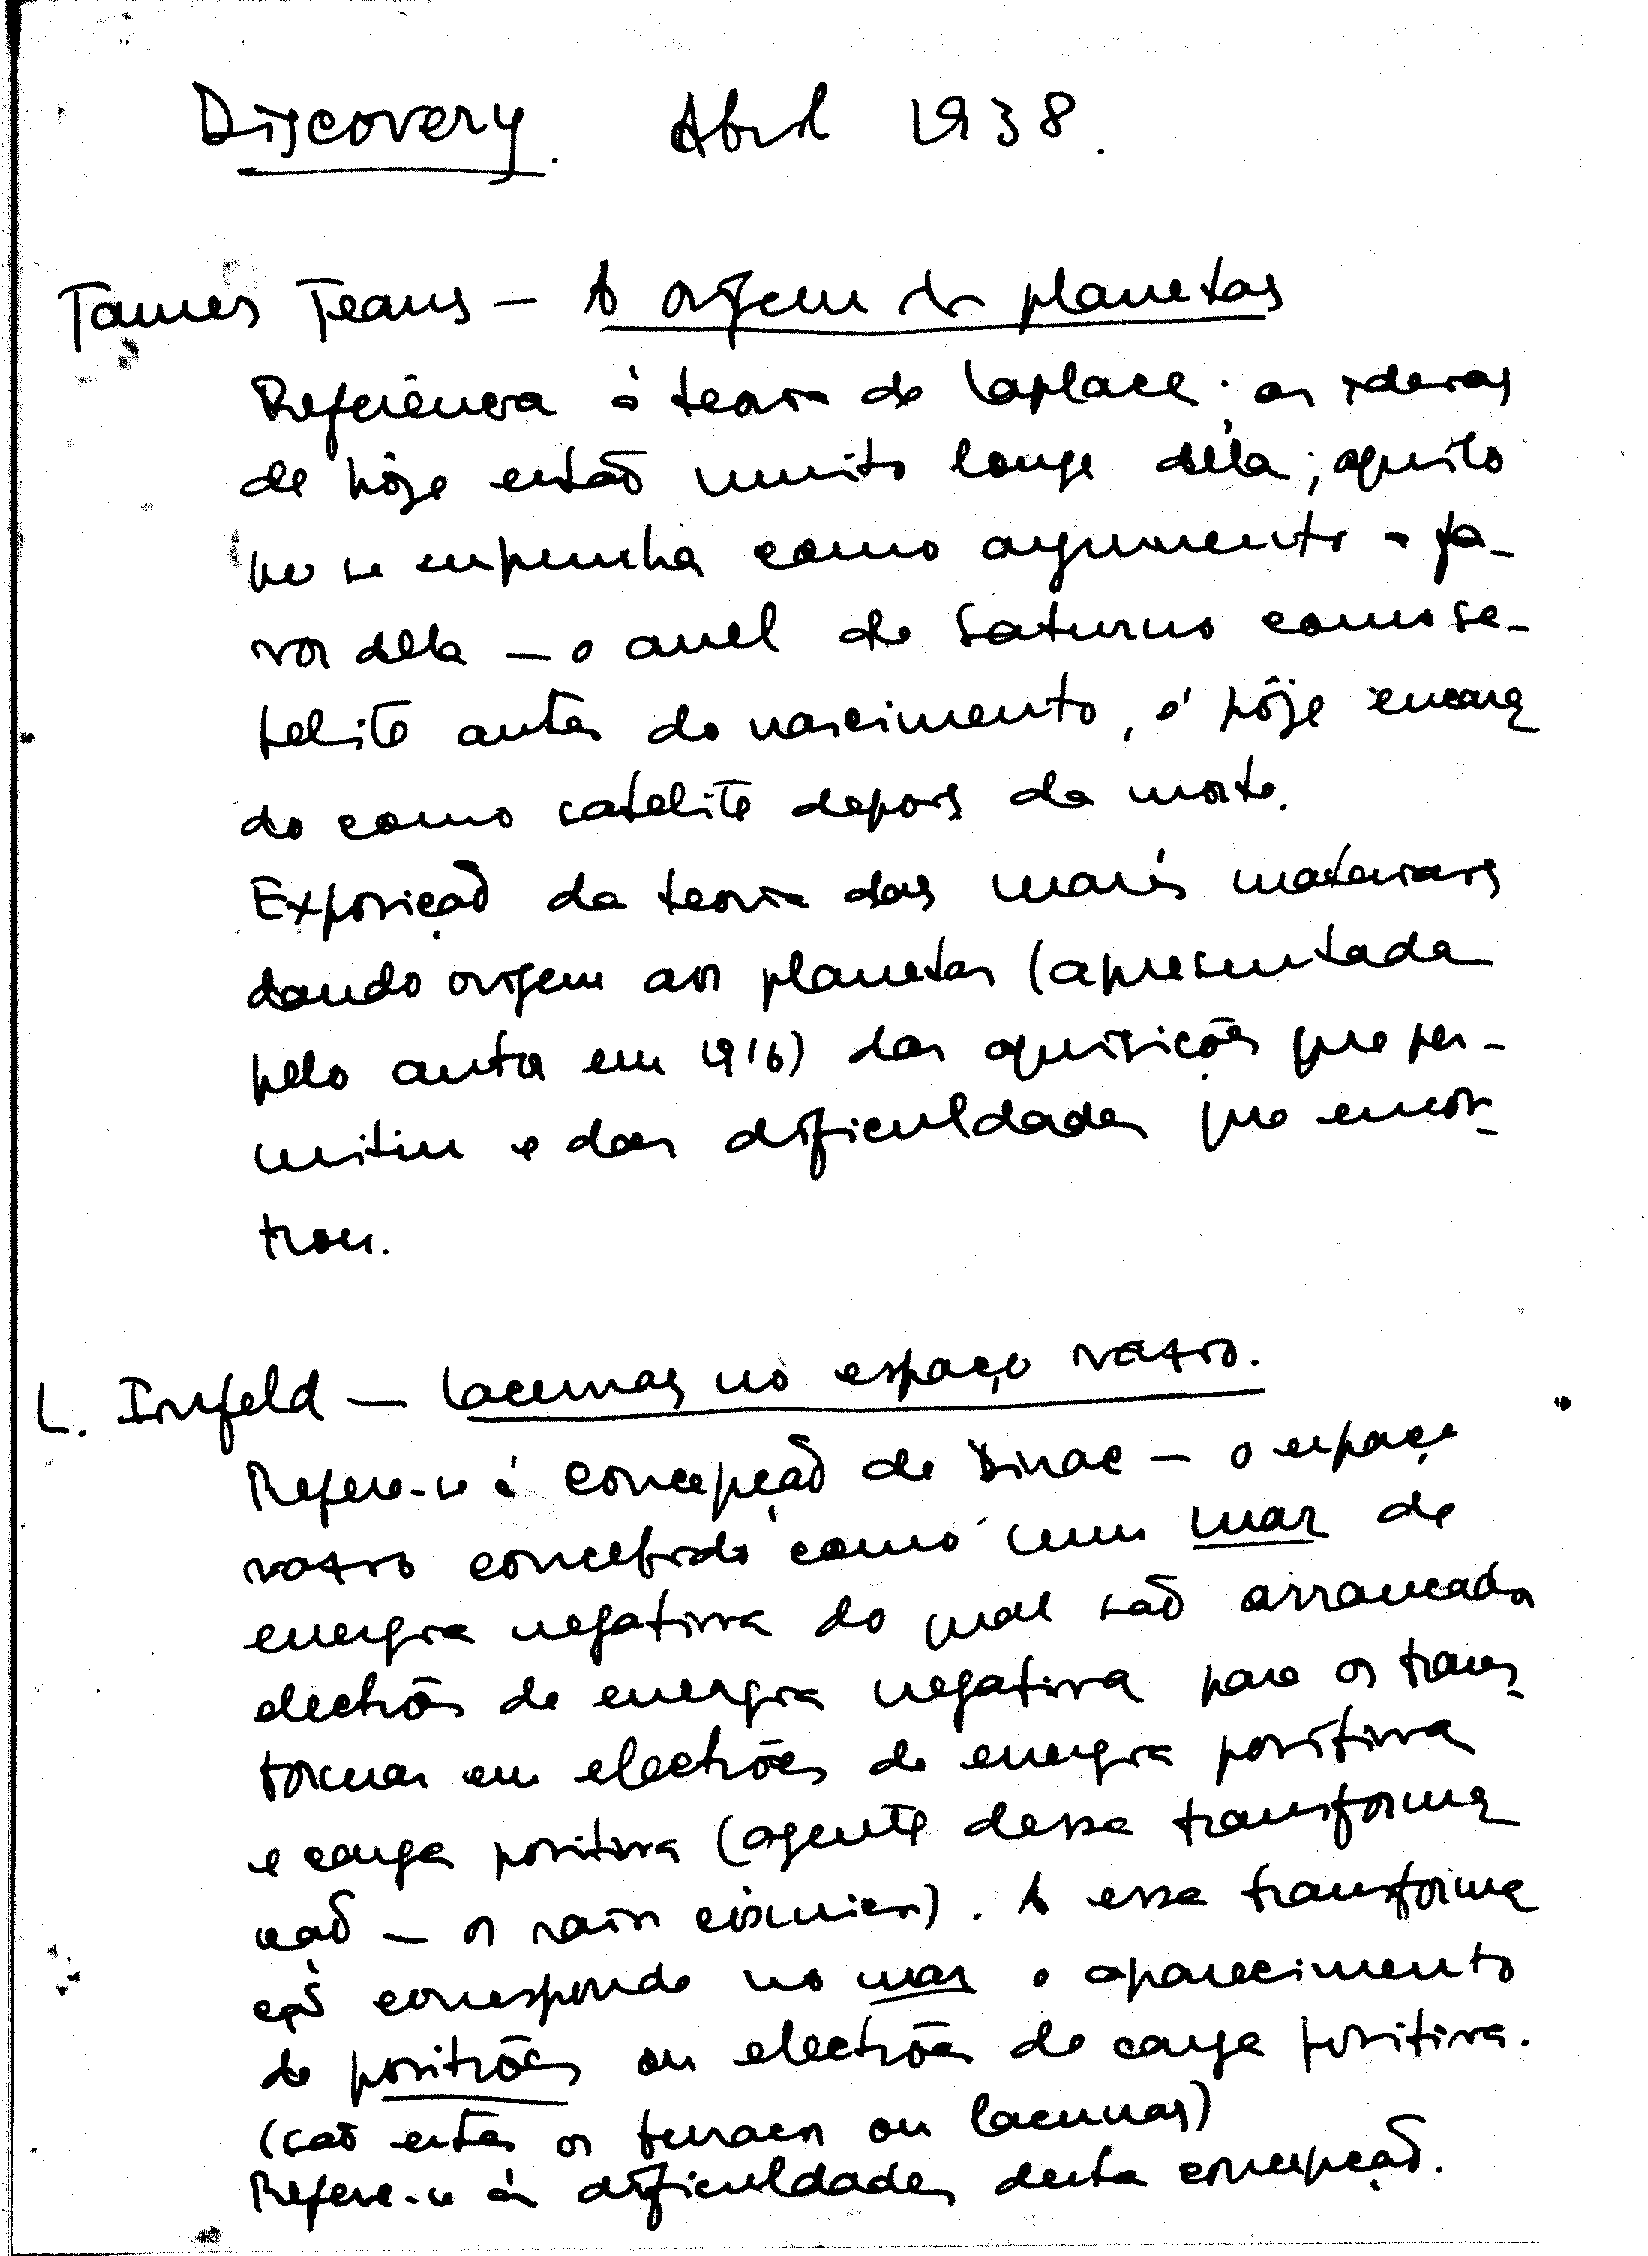 Discovery. Abril 1938.
James Jeans — A origem dos planetas
Referência à teoria de Laplace; as ideias
de hôje estão muito longe dela; aquilo
que se empunha como argumento a fa-
vor dela — o anel de Saturno como sa-
telite antes do nascimento, é hôje encara
do como satelite depois da morte.
Exposição da teoria das marés materiais
dando origem aos planetas (apresentada
pelo autor em 1916) das aquisições que per-
mitiu e das dificuldades que encon-
trou.
L. Infeld — Lacunas no espaço vazio.
Refere-se à concepção de Dirac — o espaço
vazio concebido como um mar de
energia negativa do qual são arrancados
electrões de energia negativa para os trans-
formar em electrões de energia positiva
e carga positiva (agente dessa transforma
ção — os raios cósmicos). A essa transforma
ção corresponde no mar o aparecimento
de positrões ou electrões de carga positiva.
(são estes os buracos ou lacunas)
Refere-se às dificuldades desta concepção.